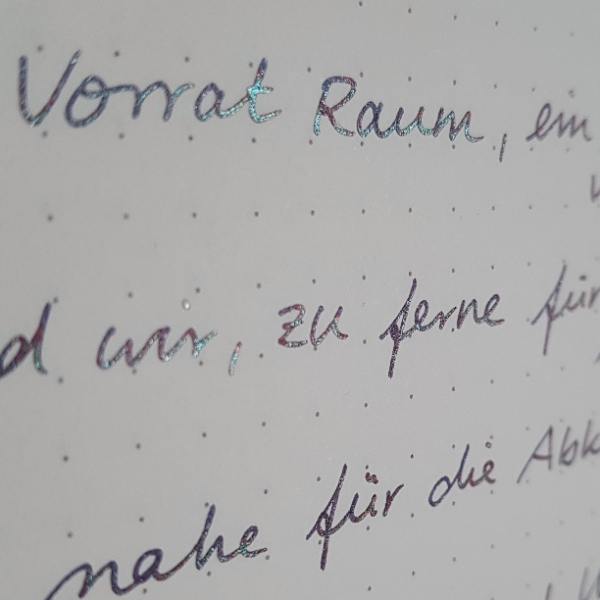 Vorrat Raum, ein
d wir, zu ferne für
nahe für die Abk